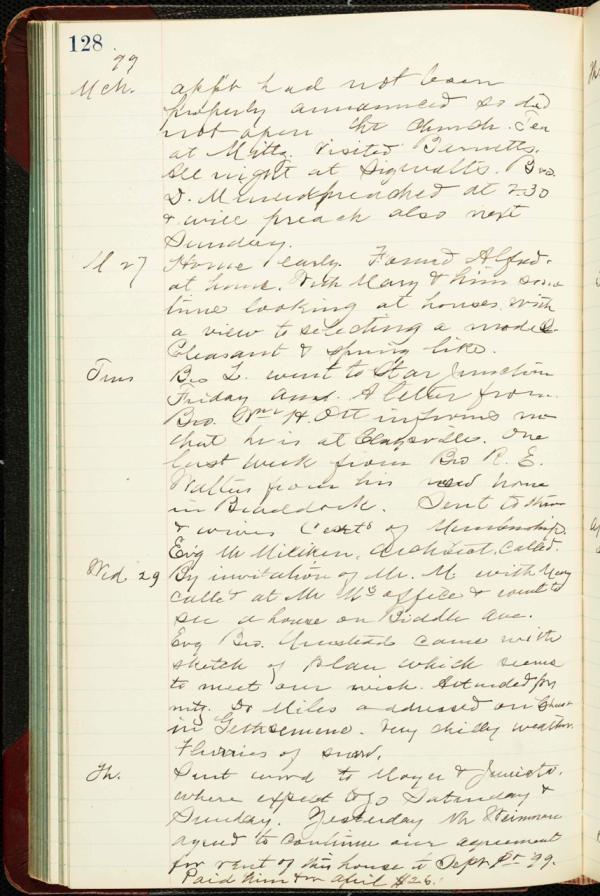 128
99
Mch. appt had not been
properly announced so did
not open the Church. Tea
at Mitts. Visited Bennetts.
All night at Sigwalts. Bro.
D. preached at 230
& will preach also next
Sunday.
M 27 Home early. Found Alfred
at home. With Mary & him some
time looking at houses with
a view to selecting a model
Pleasant & spring like.
Tues Bro L. went to Star Junction
Friday and. A letter from
Bro. Wm H. Ott informs me
that he is at One
last week from Bro R. E.
Walters from his new home
in Braddock. Sent to him
& wives Certs of Membership.
Evg Mr Miliken, Architect, called.
Wed 29 By invitation of Mr. M. with Mary
called at Mr Ms office & went to
see a house on Biddle Ave.
Evg Bro. Umstead came with
sketch of Plan which seems
to meet our wish. Attended
mtg. Dr Miles addressed on Christ
in Gethsemene. Very chilly weather
Flurries of snow.
Th. Sent word to Moyer &
where expect to go Saturday &
Sunday. Yesterday Mr
agreed to continue our agreement
for rent of this house to Sept 1st 99.
Paid him for April $26.